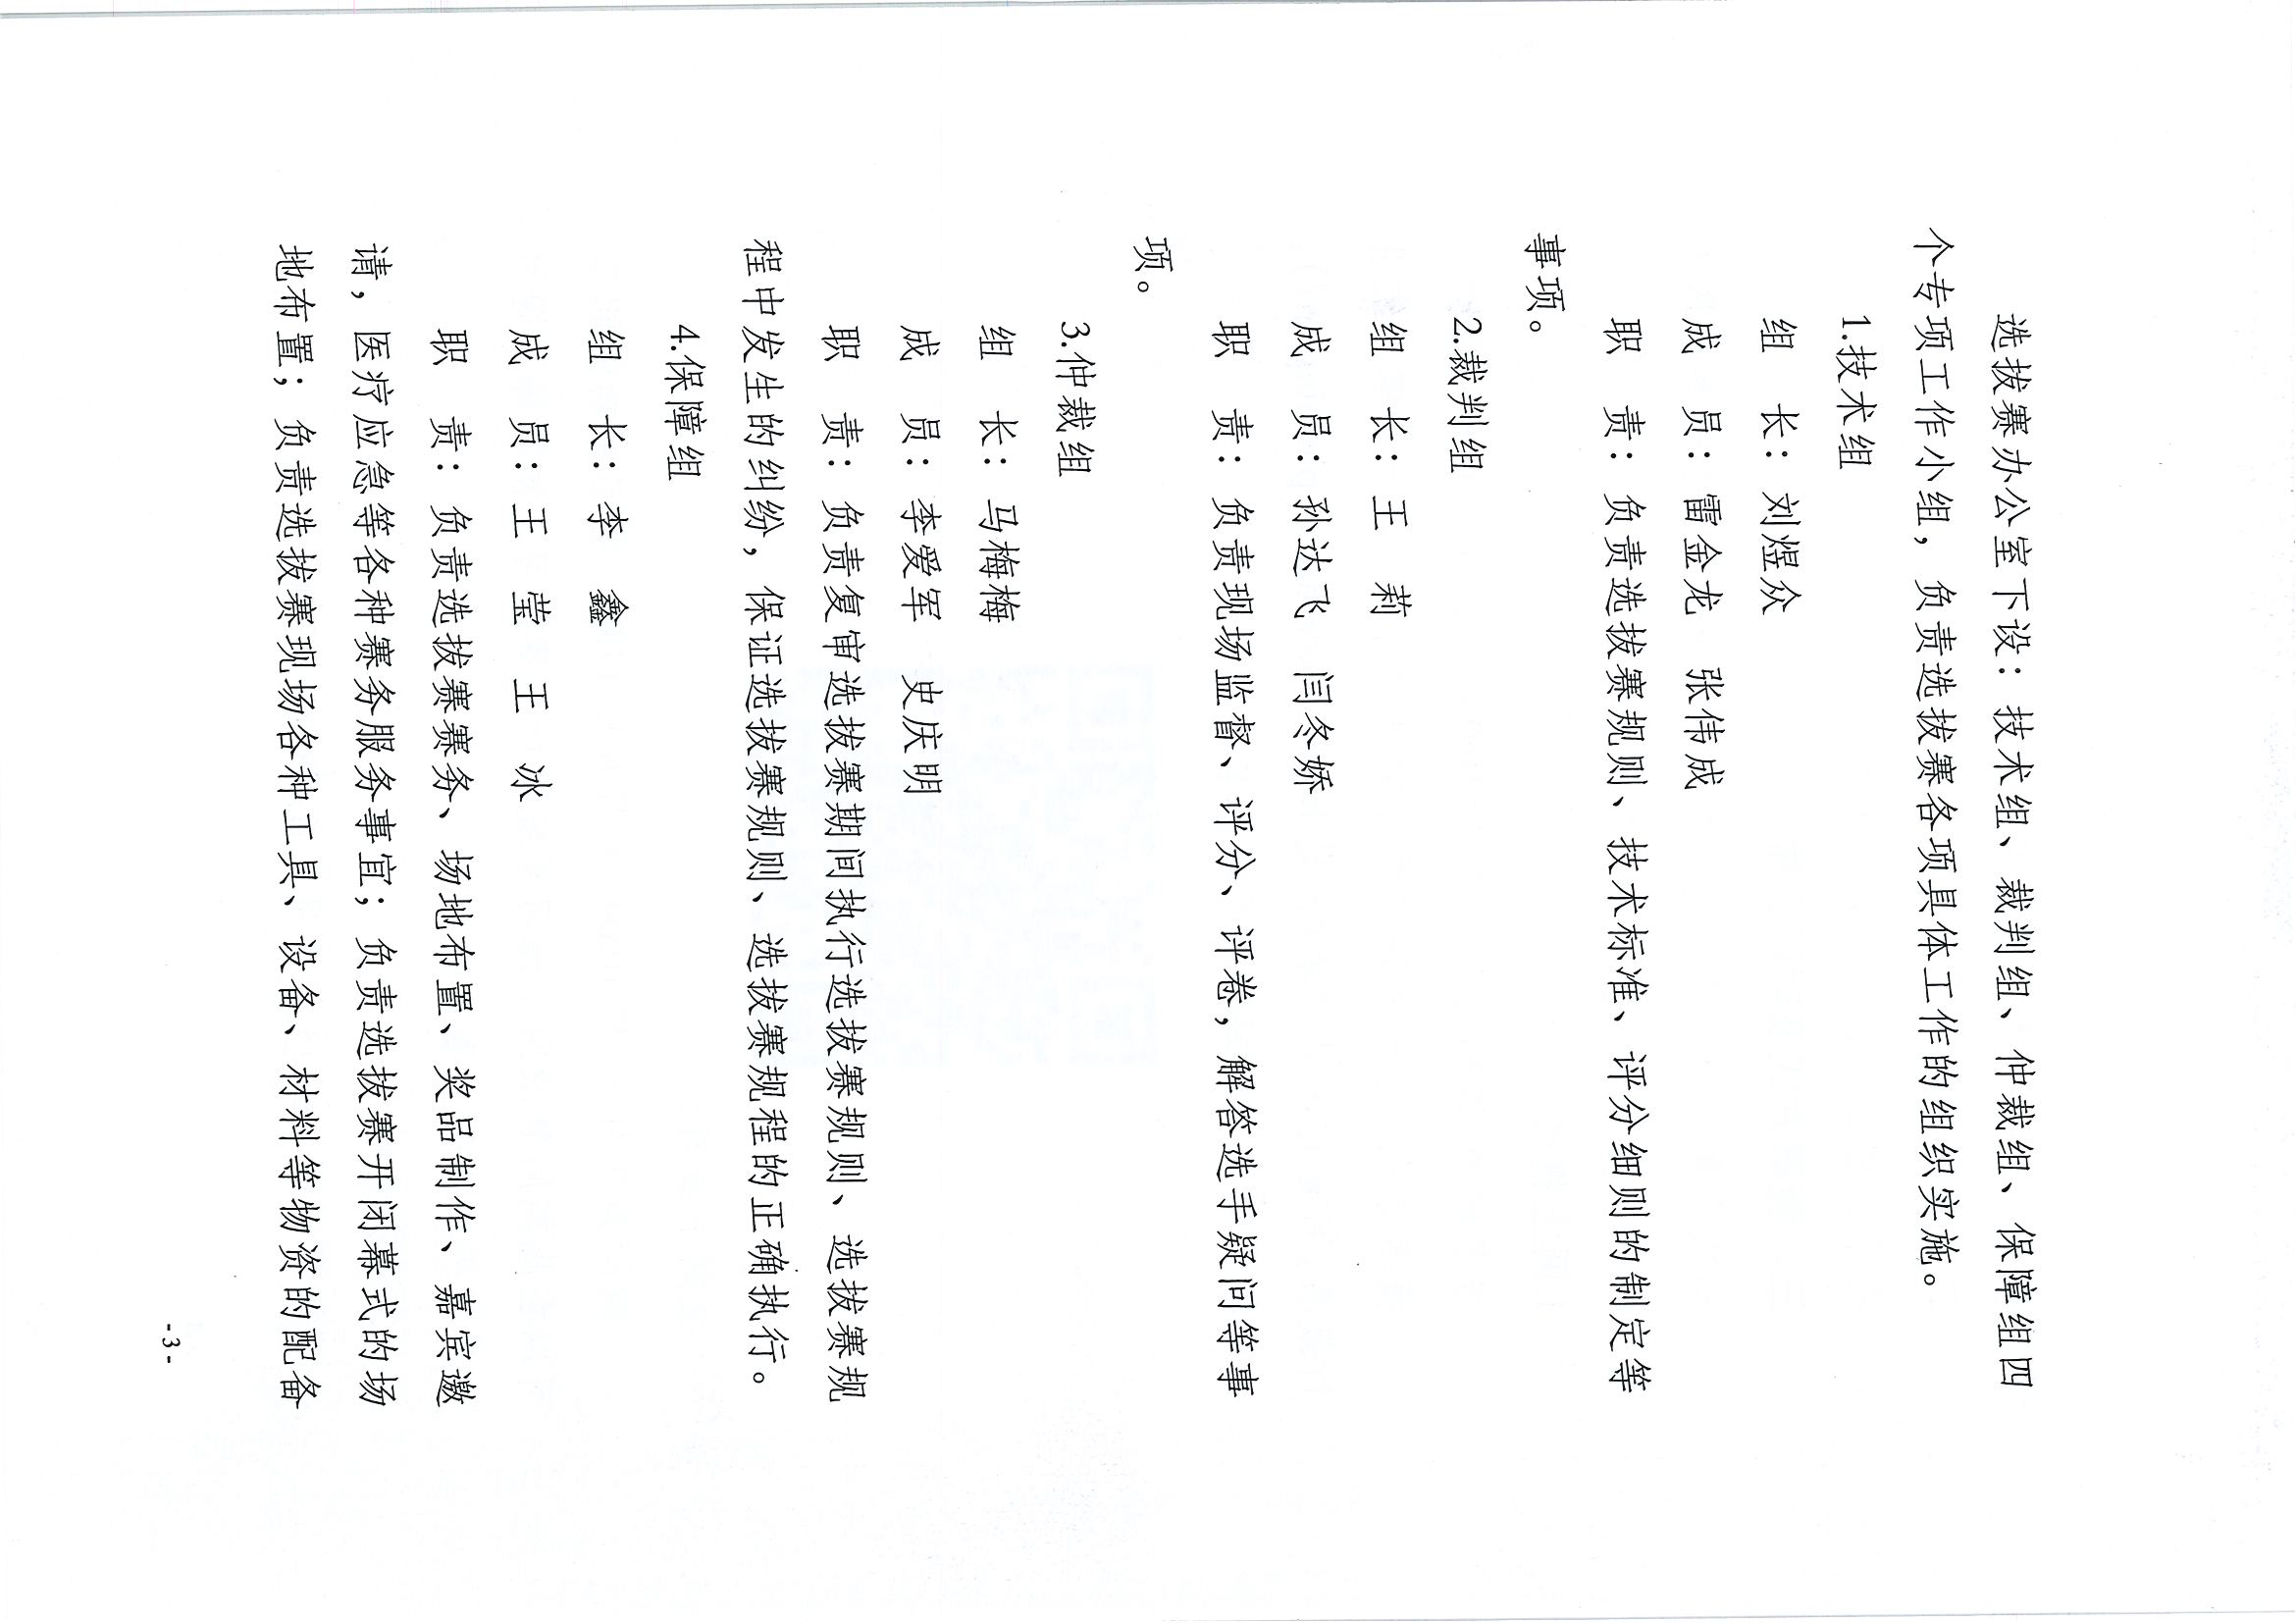 选拔赛办公室下设：技术组、裁判组、仲裁组、保障组四
个专项工作小组，负责选拔赛各项具体工作的组织实施。
1.技术组
组 长：刘煜众
成 员：雷金龙 张伟成
职 责：负责选拔赛规则、技术标准、评分细则的制定等
事项。
2.裁判组
组 长：王 莉
成 员：孙达飞 闫冬娇
职 责：负责现场监督、评分、评卷，解答选手疑问等事
项。
3.仲裁组
组 长：马梅梅
成 员：李爱军 史庆明
职 责：负责复审选拔赛期间执行选拔赛规则、选拔赛规
程中发生的纠纷，保证选拔赛规则、选拔赛规程的正确执行。
4.保障组
组 长：李 鑫
成 员：王 莹 王 冰
职 责：负责选拔赛赛务、场地布置、奖品制作、嘉宾邀
请，医疗应急等各种赛务服务事宜；负责选拔赛开闭幕式的场
地布置；负责选拔赛现场各种工具、设备、材料等物资的配备
-3-